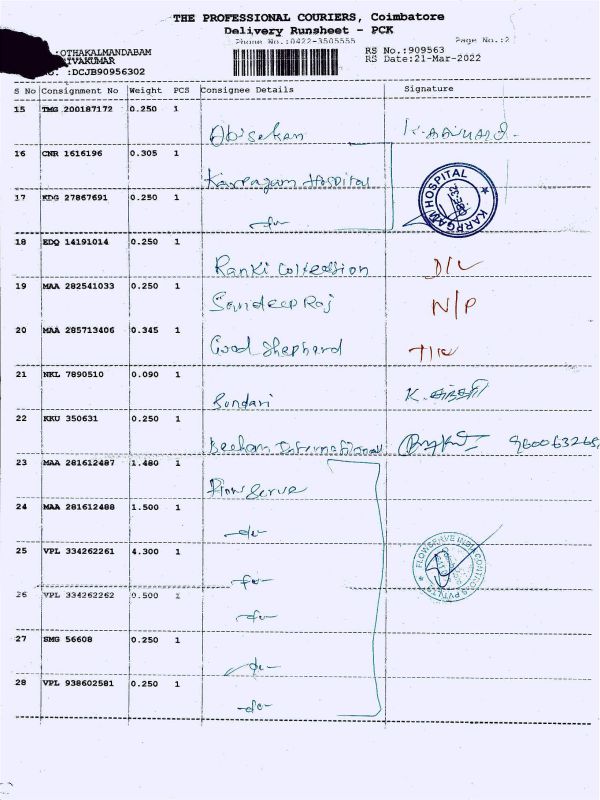 THE PROFESSIONAL COURIERS, Coimbatore
Delivery Runsheet - PCK
Phone No.:0422-3505555 Page No.:2
:OTHAKALMANDABAM RS No.:909563
IVAKUMAR RS Date:21-Mar-2022
:DCJB90956302
S No Consignment No Weight PCS Consignee Details Signature
15 TMG 200187172 0.250 1
16 CNR 1616196 0.305 1
Karpagam Hospital
17 KDG 27867691 0.250 1
KARPAGAM HOSPITAL
18 EDQ 14191014 0.250 1
Ranki Collection D/L
19 MAA 282541033 0.250 1
Sandeep Raj N/P
20 MAA 285713406 0.345 1
Good Shepherd
21 NKL 7890510 0.090 1
Sundari K.
22 KKU 350631 0.250 1
International
23 MAA 281612487 1.480 1
Flow Serve
24 MAA 281612488 1.500 1
-do-
25 VPL 334262261 4.300 1
FLOWSERVE INDIA CONTROLS PVT LTD
-do-
26 VPL 334262262 0.500 1
-do-
27 SMG 56608 0.250 1
-do-
28 VPL 938602581 0.250 1
-do-